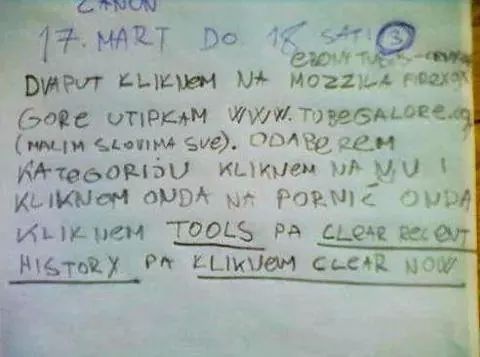 CANON
17. MART DO 18 SATI 3
DVAPUT KLIKNEM NA MOZZILA FIREFOX
GORE UTIPKAM WWW.TUBEGALORE.
(MALIM SLOVIMA SVE). ODABEREM
KATEGORIJU KLIKNEM NA NJU I
KLIKNEM ONDA NA PORNIĆ ONDA
KLIKNEM TOOLS PA CLEAR RECENT
HISTORY PA KLIKNEM CLEAR NOW